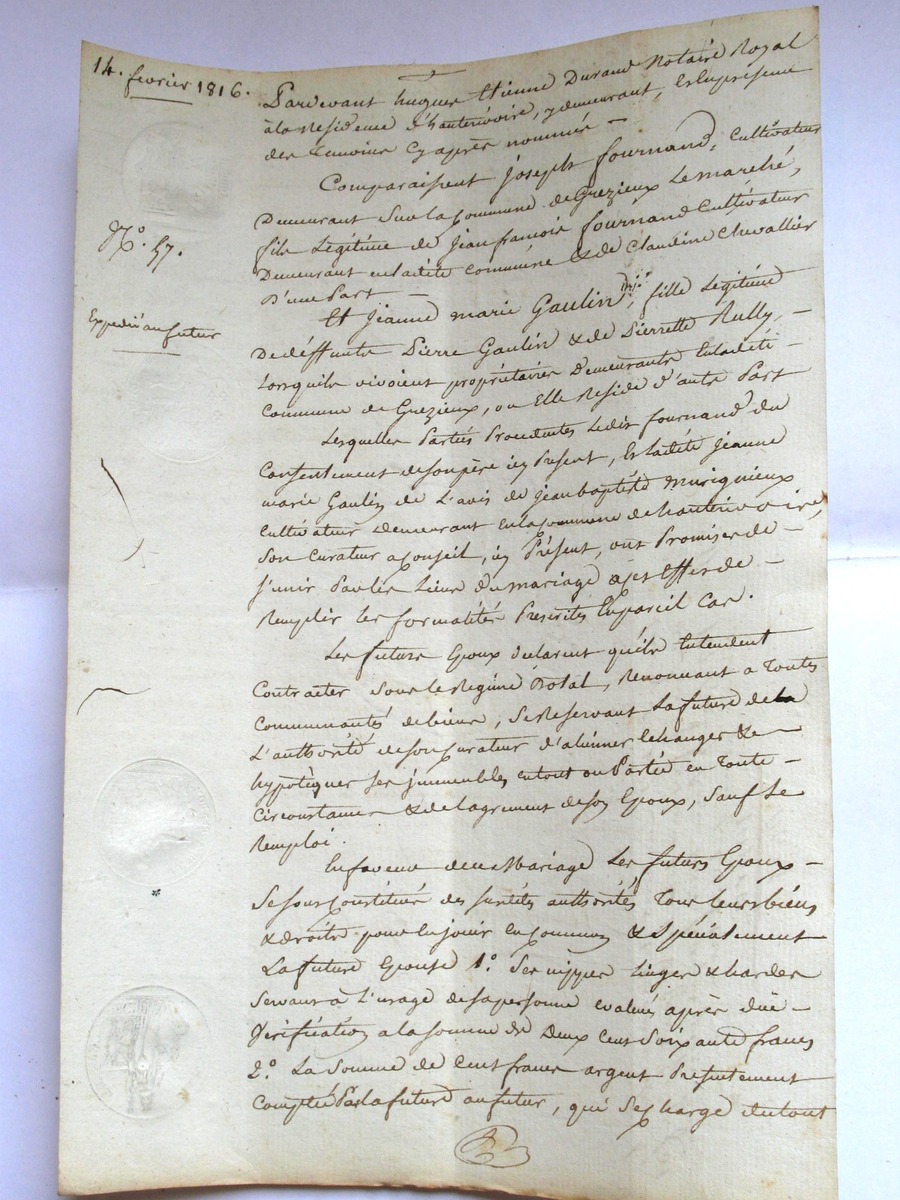 14. fevrier 1816.
Pardevant hugues Etienne Durand Notaire Royal
à la Residence d'hauterivoire, y demeurant, Et En presence
des Temoins Cy après nommés —
Comparaissent joseph fournand, Cultivateur
Demeurant Sur la Commune de Grezieux Le marché,
N.o 57.
fils Légitime de jean françois fournand Cultivateur
Demeurant en ladite Commune & de Claudine Chevallier
D'une Part —
Expedié au futur
Et jeanne marie Gaulin, fille Légitime
De déffunts Pierre Gaulin & de Pierrette Rully, —
Lorsquils vivoient propriétaires Demeurants En ladite —
Commune de Grezieux, ou Elle Reside d'autre Part
Lesquelles Parties Procedantes Ledit fournand du
Consentement de son père icy Present, Et ladite jeanne
marie Gaulin de L'avis de jean baptiste murigneux
Cultivateur Demeurant En la Commune de hauterivoire,
Son Curateur a Conseil, icy Présent, ont Promis de —
s'unir Par les Liens du mariage & a cet Effet de —
Remplir les formalités Prescrites En pareil Cas.
Les futurs Epoux declarent qu'ils Entendent
Contracter Sous le Regime Dotal, Renonçant a Toutes
Communautés de biens, Se Reservant La future de la
L'authorité de son Curateur d'aliénner Echanger & —
hypotèquer Ses jmmeubles en tout ou Partie en Toute —
Circonstances & de lagrement de son Epoux, Sauf Le
Remploi.
En faveur de ce Mariage Les futurs Epoux —
Se sont Constitués des susdites authorités Tous leurs biens
& droits pour En jouir En Commun & Spécialement
La future Epouse 1.o Ses nippes linges & hardes
Servant à L'usage de sa personne evalués après duë —
Vérification a la somme de Deux Cent Soixante francs
2.o La Somme de Cent francs argent Presentement
Comptée Par la future au futur, qui S'e Charge du tout